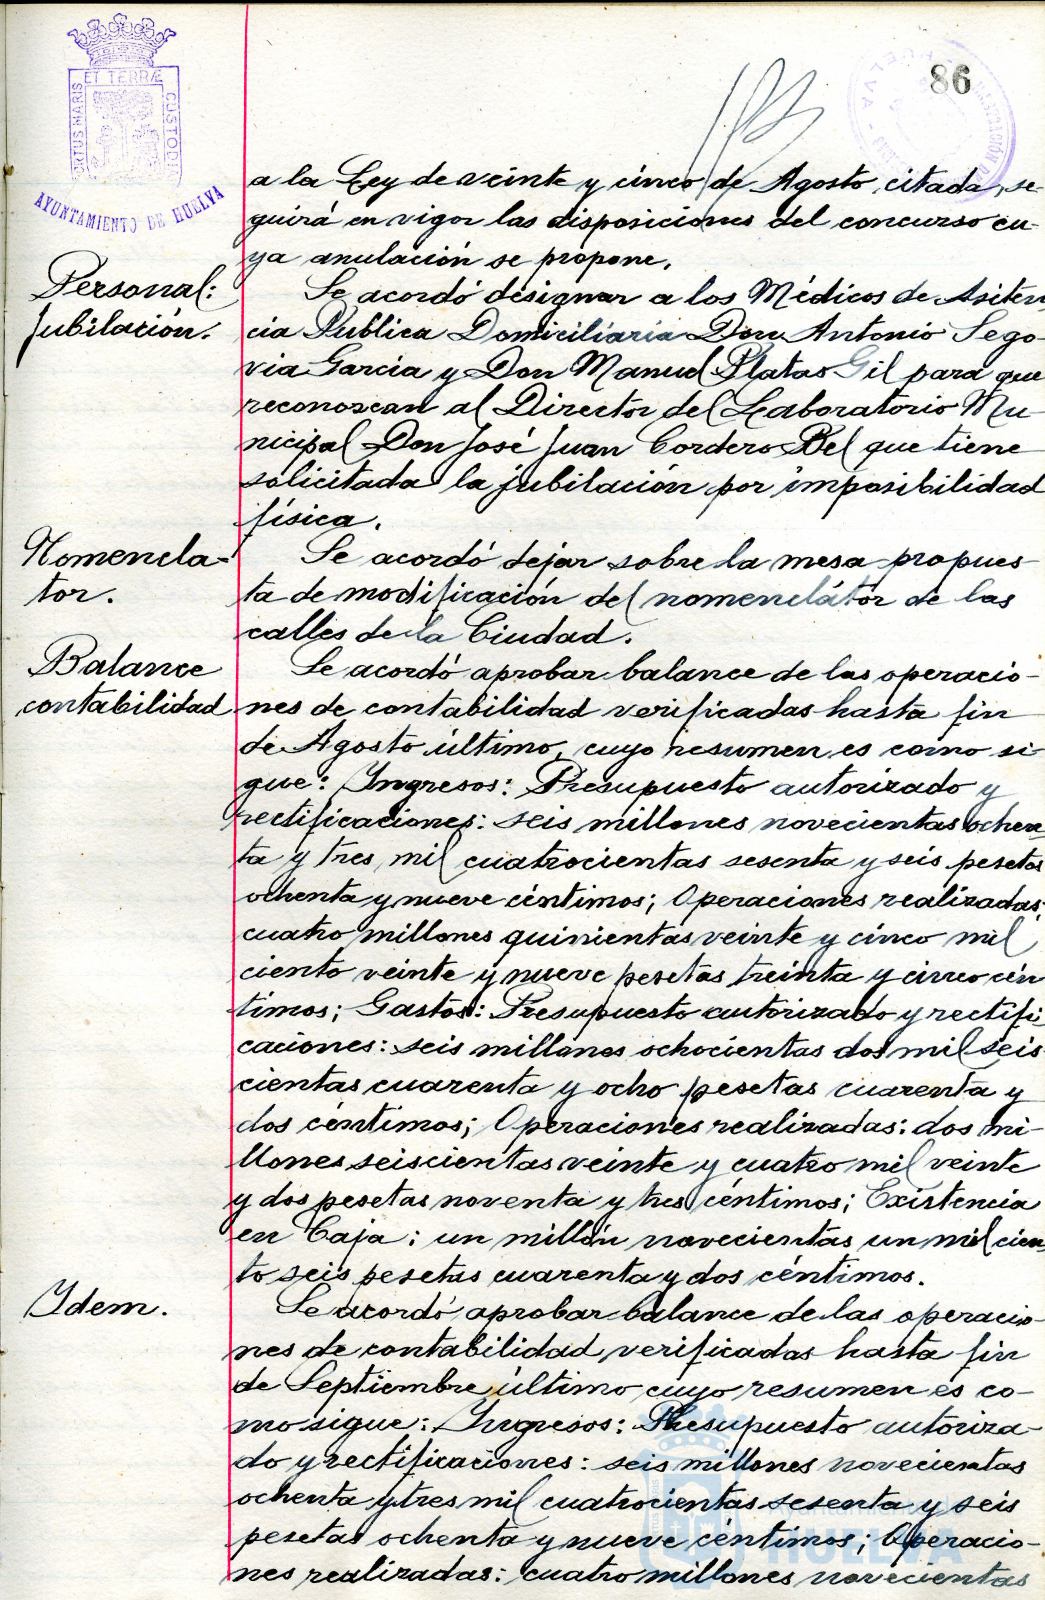 PORTUS MARIS ET TERRÆ CUSTODIA
AYUNTAMIENTO DE HUELVA
86
a la Ley de veinte y cinco de Agosto citada, se-
guirá en vigor las disposiciones del concurso cu-
ya anulación se propone.
Personal:
Jubilación.
Se acordó designar a los Médicos de Asiten-
cia Publica Domiciliaria Don Antonio Sego-
via Garcia y Don Manuel Platas Gil para que
reconozcan al Director del Laboratorio Mu-
nicipal Don José Juan Cordero Bel que tiene
solicitada la jubilación por imposibilidad
física.
Nomencla-
tor.
Se acordó dejar sobre la mesa propues-
ta de modificación del nomenclátor de las
calles de la Ciudad.
Balance
contabilidad
Se acordó aprobar balance de las operacio-
nes de contabilidad verificadas hasta fin
de Agosto último, cuyo resumen es como si-
gue: Ingresos: Presupuesto autorizado y
rectificaciones: seis millones novecientas ochen-
ta y tres mil cuatrocientas sesenta y seis pesetas
ochenta y nueve céntimos; Operaciones realizadas:
cuatro millones quinientas veinte y cinco mil
ciento veinte y nueve pesetas treinta y cinco cén
timos; Gastos: Presupuesto autorizado y rectifi
caciones: seis millones ochocientas dos mil seis-
cientas cuarenta y ocho pesetas cuarenta y
dos céntimos; Operaciones realizadas: dos mi-
llones seiscientas veinte y cuatro mil veinte
y dos pesetas noventa y tres céntimos; Existencia
en Caja: un millón novecientas un mil cien-
to seis pesetas cuarenta y dos céntimos.
Idem.
Se acordó aprobar balance de las operacio-
nes de contabilidad verificadas hasta fin
de Septiembre último cuyo resumen es co-
mo sigue: Ingresos: Presupuesto autoriza-
do y rectificaciones: seis millones novecientas
ochenta y tres mil cuatrocientas sesenta y seis
pesetas ochenta y nueve céntimos; Operacio-
nes realizadas: cuatro millones novecientas
Ayuntamiento de
HUELVA